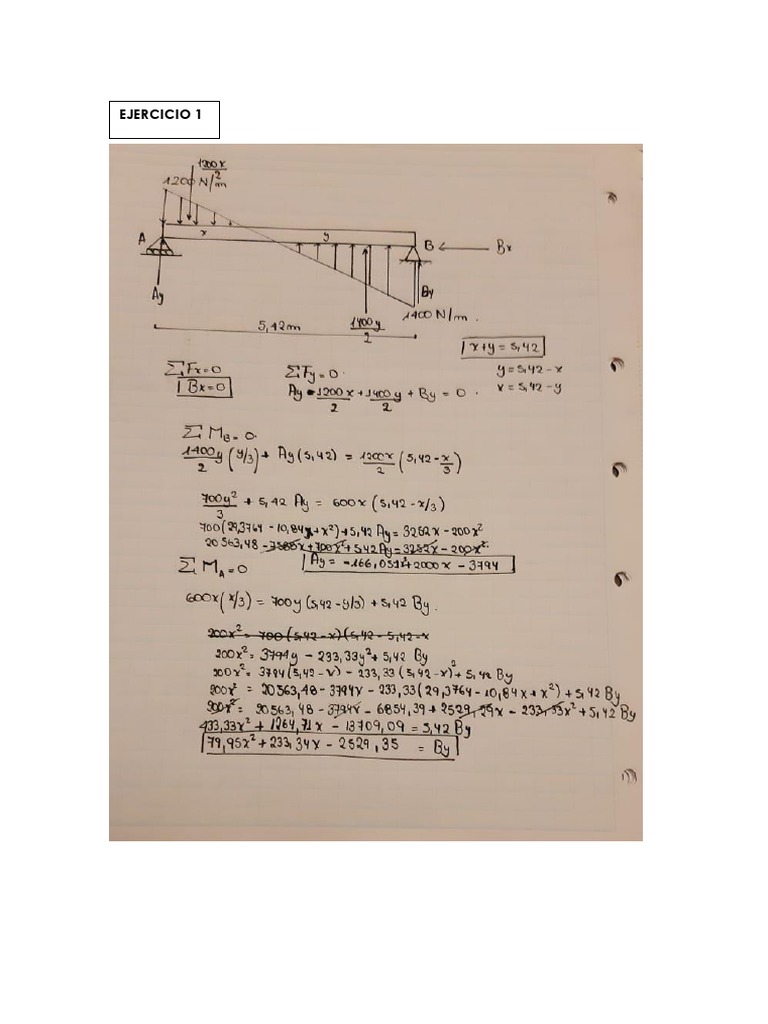 EJERCICIO 1
1200x
2
1200 N/m
A
x
y
B
Bx
Ay
By
1400 N/m.
5,42m
1400y
2
x+y = 5,42
ΣFx=0
ΣFy=0.
y=5,42-x
Bx=0
Ay - 1200x/2 + 1400y/2 + By = 0.
x = 5,42-y
ΣM_B=0.
1400y/2 (y/3) + Ay (5,42) = 1200x/2 (5,42 - x/3)
700y²/3 + 5,42 Ay = 600x (5,42 - x/3)
700(29,3764 - 10,84x + x²) + 5,42 Ay = 3252x - 200x²
20 563,48 - 7588x + 700x² + 5,42 Ay = 3252x - 200x²
ΣM_A=0
Ay = -166,051² + 2000x - 3794
600x (x/3) = 700y (5,42 - y/3) + 5,42 By.
200x² = 700 (5,42 - x)(5,42 - 5,42 - x
200x² = 3794y - 233,33y² + 5,42 By
200x² = 3794 (5,42 - x) - 233,33 (5,42 - x)² + 5,42 By
200x² = 20 563,48 - 3794x - 233,33 (29,3764 - 10,84x + x²) + 5,42 By
200x² = 20 563,48 - 3794x - 6854,39 + 2529,29x - 233,33x² + 5,42 By
433,33x² + 1264,71x - 13709,09 = 5,42 By
79,95x² + 233,34x - 2529,35 = By